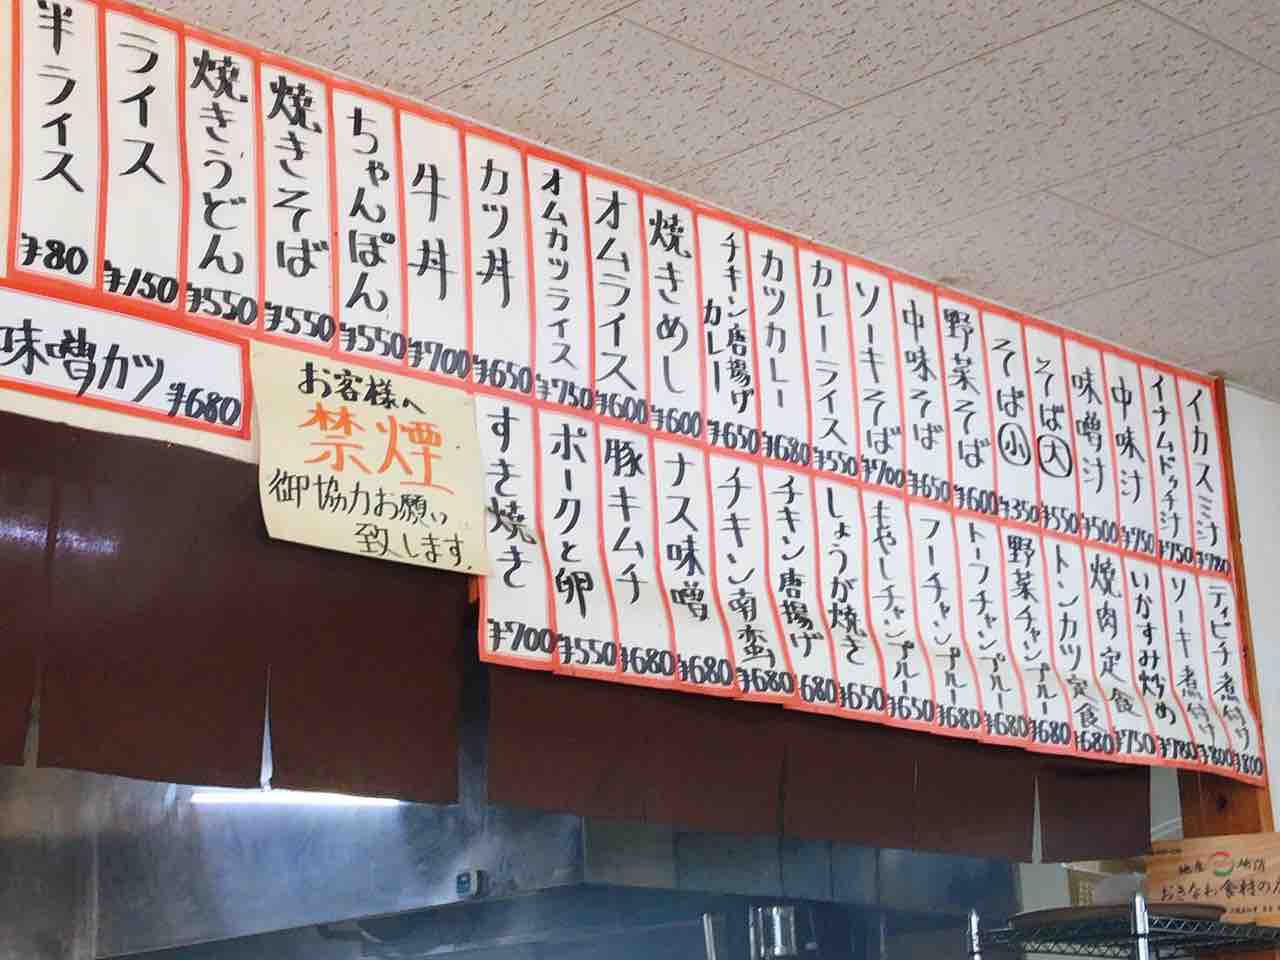 イカスミ汁
¥780
イナムドゥチ汁
¥750
中味汁
¥750
味噌汁
¥500
そば大
¥550
そば小
¥350
野菜そば
¥600
中味そば
¥650
ソーキそば
¥700
カレーライス
¥550
カツカレー
¥680
チキン唐揚げ
カレー
¥650
焼きめし
¥600
オムライス
¥600
オムカツライス
¥750
カツ丼
¥650
牛丼
¥700
ちゃんぽん
¥550
焼きそば
¥550
焼きうどん
¥550
ライス
¥150
半ライス
¥80
ティビチ煮付け
¥800
ソーキ煮付け
¥800
いかすみ炒め
¥780
焼肉定食
¥750
トンカツ定食
¥680
野菜チャンプルー
¥680
トーフチャンプルー
¥680
フーチャンプルー
¥680
もやしチャンプルー
¥650
しょうが焼き
¥650
チキン唐揚げ
680
チキン南蛮
¥680
ナス味噌
¥680
豚キムチ
¥680
ポークと卵
¥550
すき焼き
¥700
味噌カツ ¥680
お客様へ
禁煙
御協力お願い
致します.
地産
おきなわ食材の